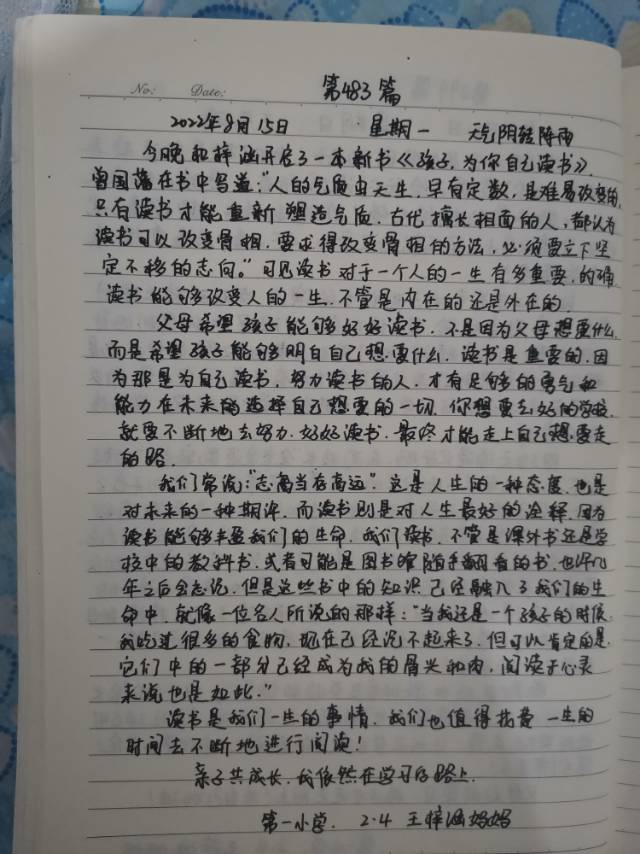 No:
Date:
第483篇
2022年8月15日 星期一 天气阴转阵雨
今晚和梓涵开启了一本新书《孩子,为你自己读书》.
曾国藩在书中写道:"人的气质由天生,早有定数,是难易改变的,
只有读书才能重新塑造气质.古代擅长相面的人,都认为
读书可以改变骨相.要求得改变骨相的方法,必须要立下坚
定不移的志向."可见读书对于一个人的一生有多重要,的确
读书能够改变人的一生.不管是内在的还是外在的.
父母希望孩子能够好好读书.不是因为父母想要什么,
而是希望孩子能够明白自己想要什么.读书是重要的,因
为那是为自己读书,努力读书的人,才有足够的勇气和
能力在未来的选择自己想要的一切.你想要去好的学校,
就要不断地去努力.好好读书.最终才能走上自己想要走
的路.
我们常说:"志当存高远".这是人生的一种态度,也是
对未来的一种期许.而读书则是对人生最好的诠释,因为
读书能够丰盈我们的生命.我们读书,不管是课外书还是学
校中的教科书.或者可能是图书馆随手翻看的书.也许几
年之后会忘记,但是这些书中的知识已经融入了我们的生
命中.就像一位名人所说的那样:"当我还是一个孩子的时候,
我吃过很多的食物,现在已经记不起来了.但可以肯定的是,
它们中的一部分已经成为我的骨头和肉,阅读于心灵
来说也是如此."
读书是我们一生的事情.我们也值得花费一生的
时间去不断地进行阅读!
亲子共成长.我依然在学习的路上.
第一小学. 2.4 王梓涵妈妈